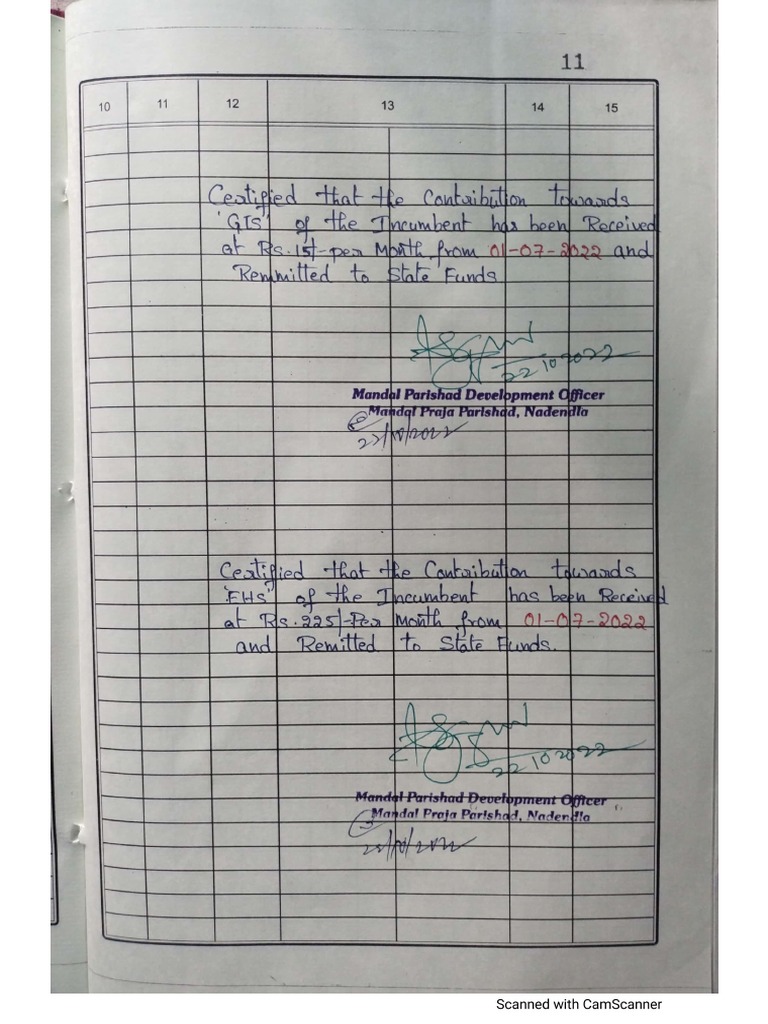 11
10 11 12 13 14 15
Certified that the Contribution towards
'GIS' of the Incumbent has been Received
at Rs.15/-per Month from 01-07-2022 and
Remmitted to State Funds
22 10 2022
Mandal Parishad Development Officer
Mandal Praja Parishad, Nadendla
22/10/2022
Certified that the Contribution towards
'EHS' of the Incumbent has been Received
at Rs.225/-Per Month from 01-07-2022
and Remitted to State Funds.
22 10 2022
Mandal Parishad Development Officer
Mandal Praja Parishad, Nadendla
Scanned with CamScanner